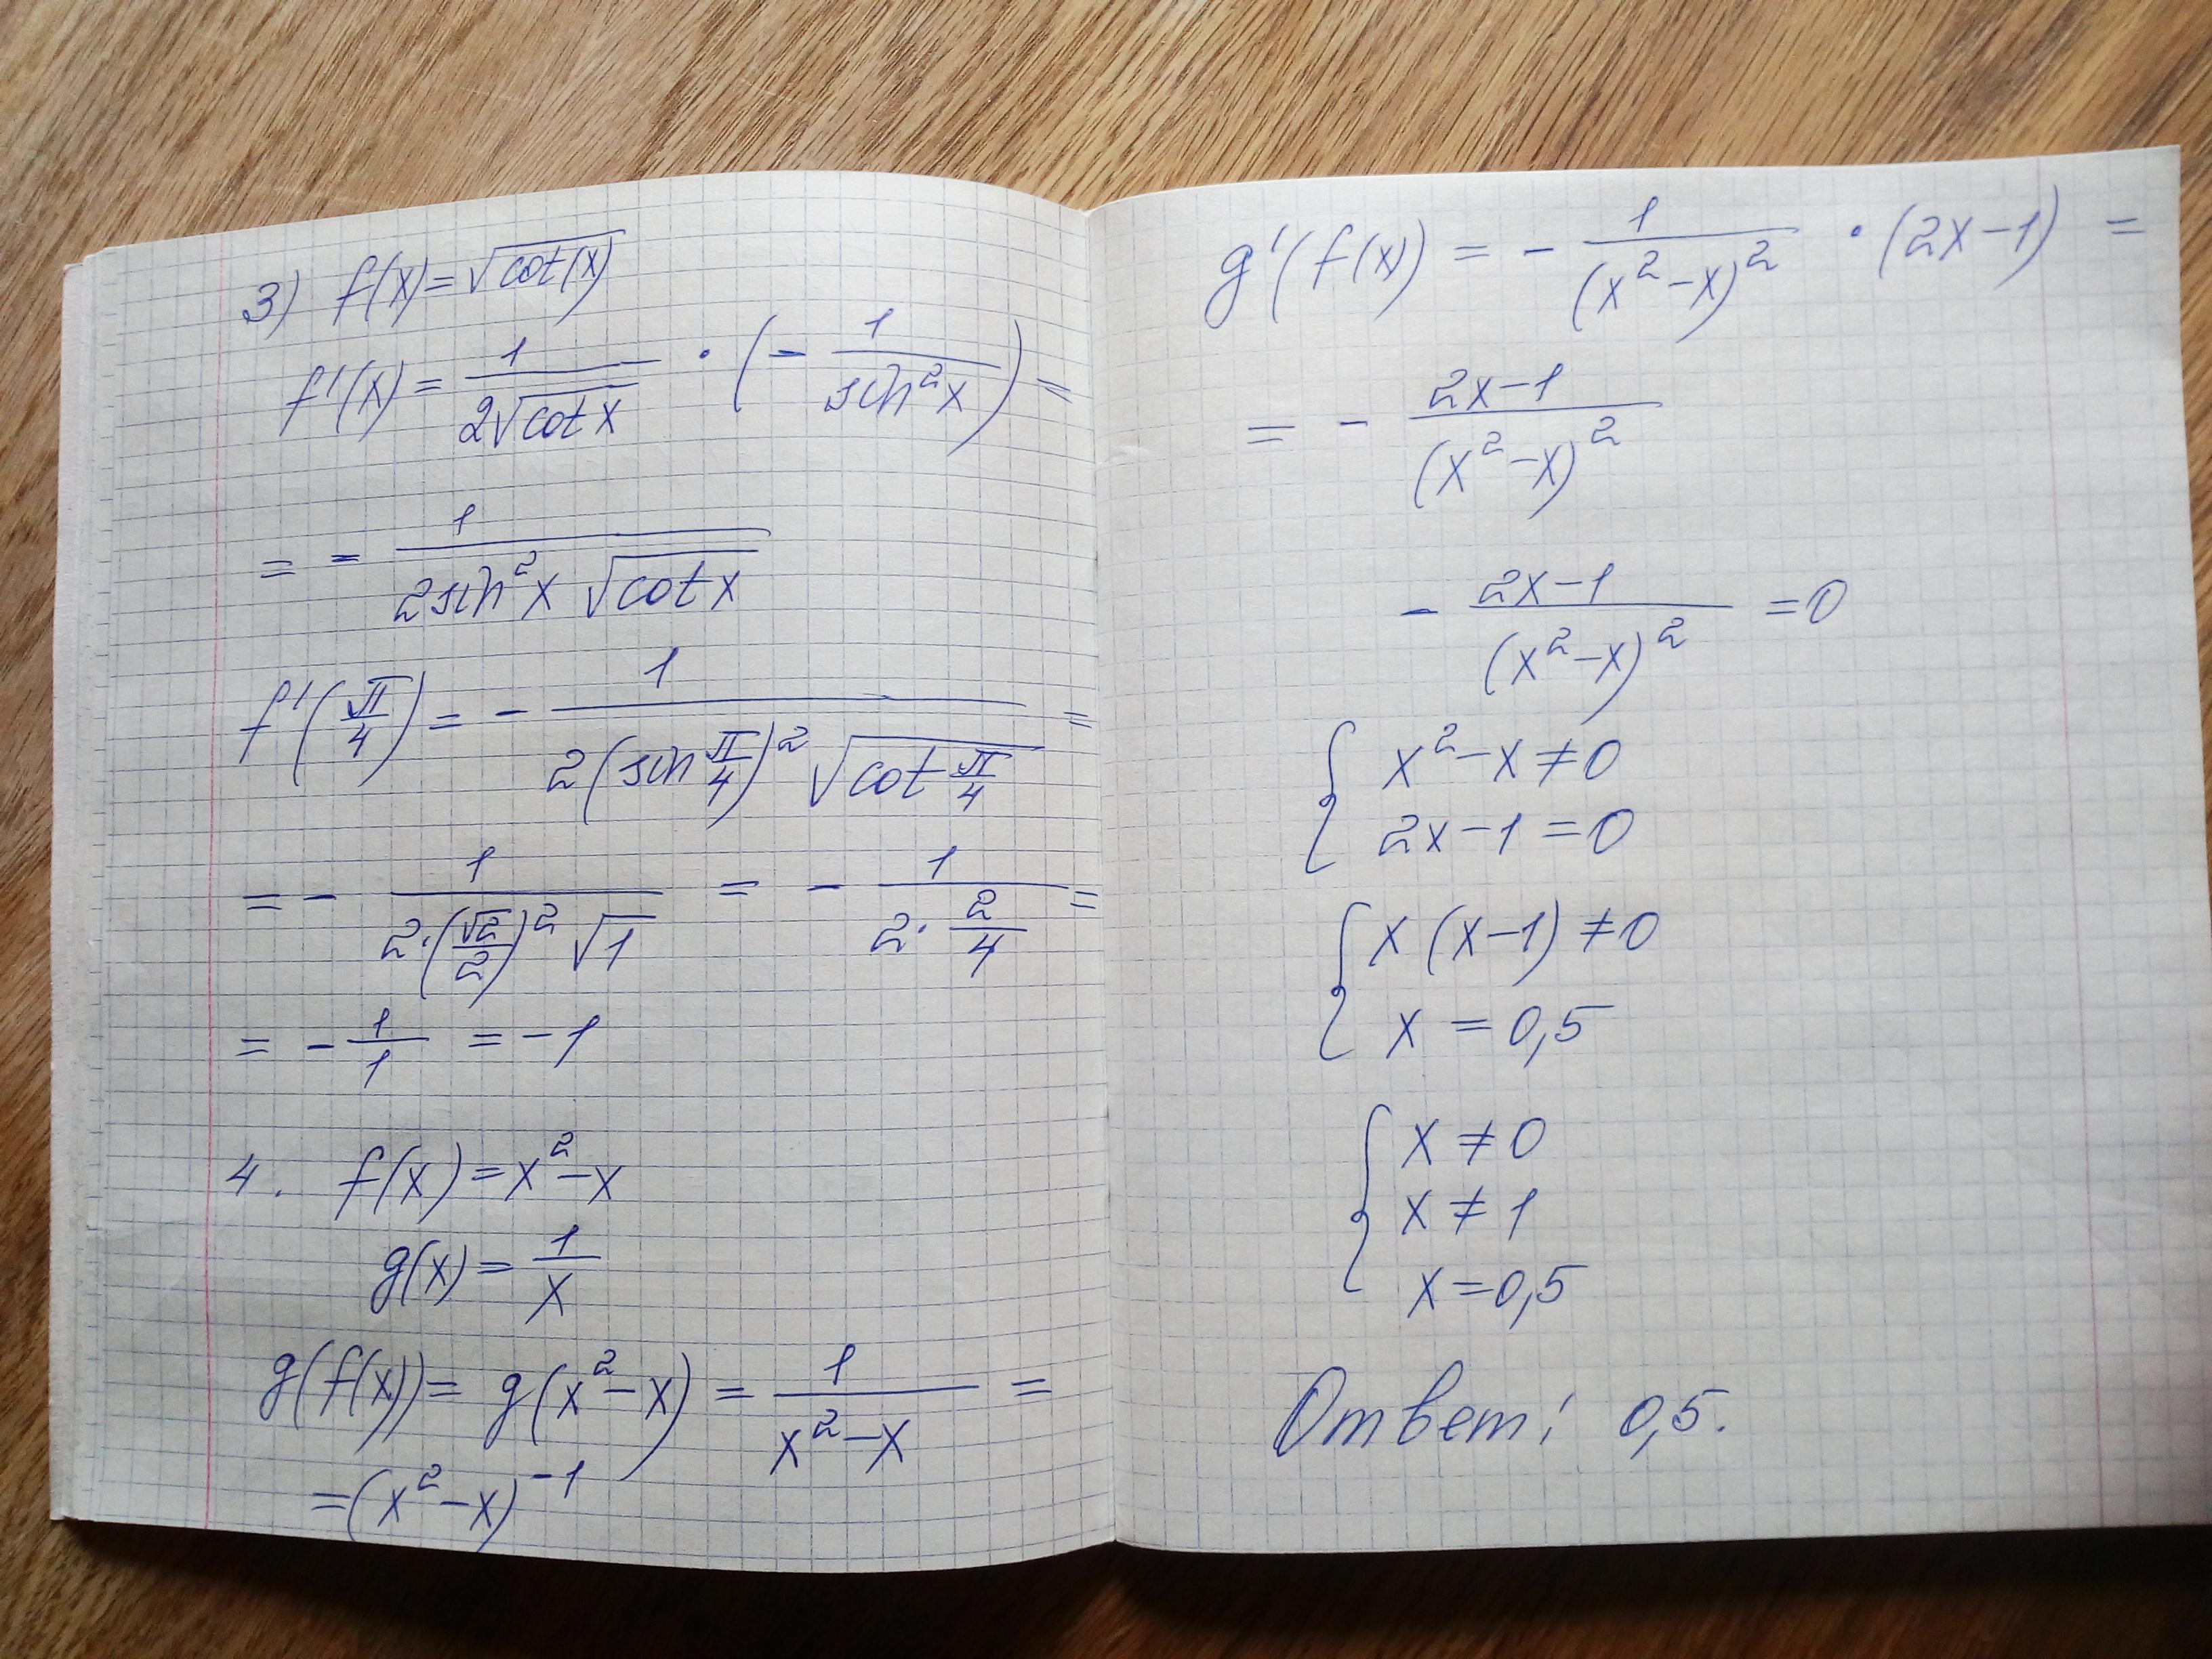 3) f(x)=√cot(x)
f'(x) = 1/(2√cot x) · (- 1/(sin²x)) =
= - 1/(2sin²x √cot x)
f'(π/4) = - 1/(2(sin π/4)² √cot π/4) =
= - 1/(2·(√2/2)² √1) = - 1/(2· 2/4) =
= - 1/1 = -1
4. f(x)=x²-x
g(x)= 1/x
g(f(x))= g(x²-x) = 1/(x²-x) =
=(x²-x)⁻¹
g'(f(x) = - 1/(x²-x)² · (2x-1) =
= - (2x-1)/(x²-x)²
- (2x-1)/(x²-x)² =0
{ x²-x≠0
2x-1=0
{ x(x-1)≠0
x = 0,5
{ x≠0
x≠1
x=0,5
Ответ: 0,5.